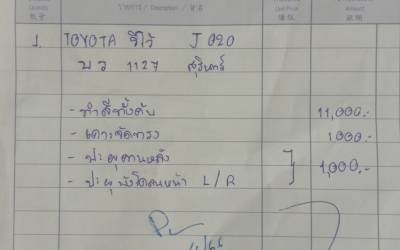 Quantity รายการ / Description / 项目 Unit Price Amount
1. TOYOTA วีโว้ J 020
บว 1127 สุรินทร์
- ทำสีทั้งคัน 11,000.-
- เคาะจัดทรง 1000.-
- ปะผุคานหลัง
- ปะผุบังโคลนหน้า L/R 1,000.-